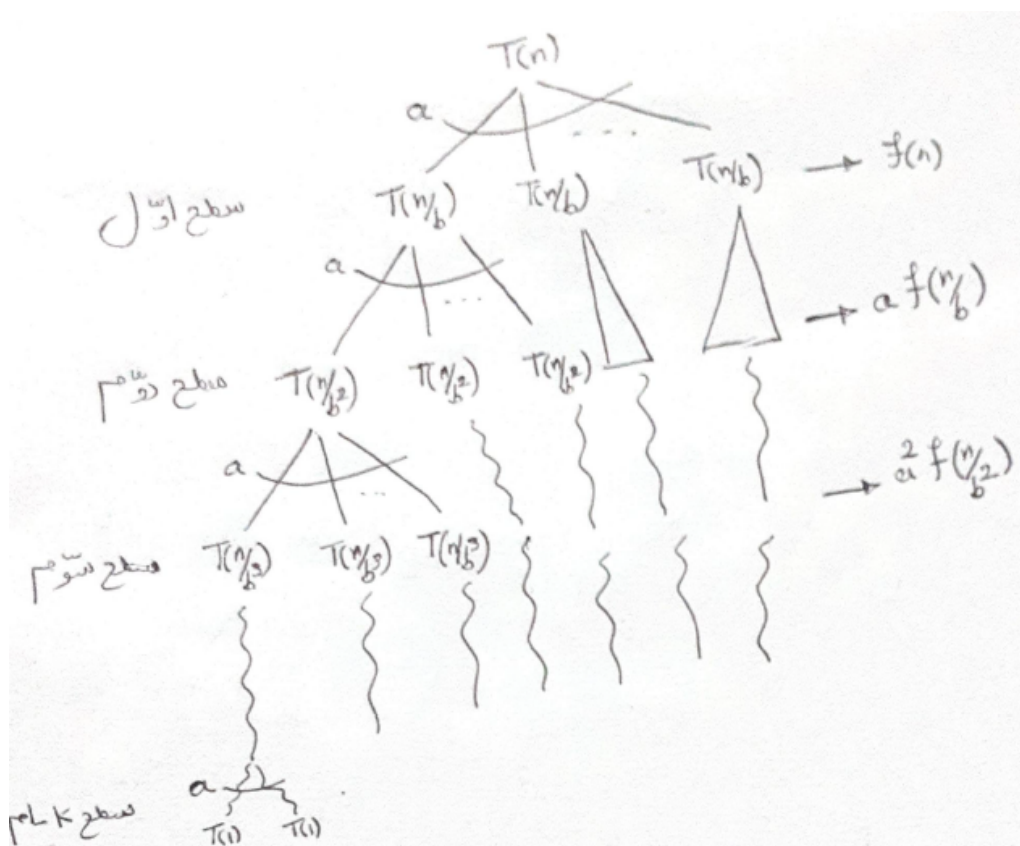 T(n)
a ....
سطح اوّل T(n/b) T(n/b) T(n/b) → f(n)
a ...
→ a f(n/b)
سطح دوّم T(n/b²) T(n/b²) T(n/b²)
a ...
→ a² f(n/b²)
سطح سوّم T(n/b³) T(n/b³) T(n/b³)
a
سطح k اُم T(1) T(1)